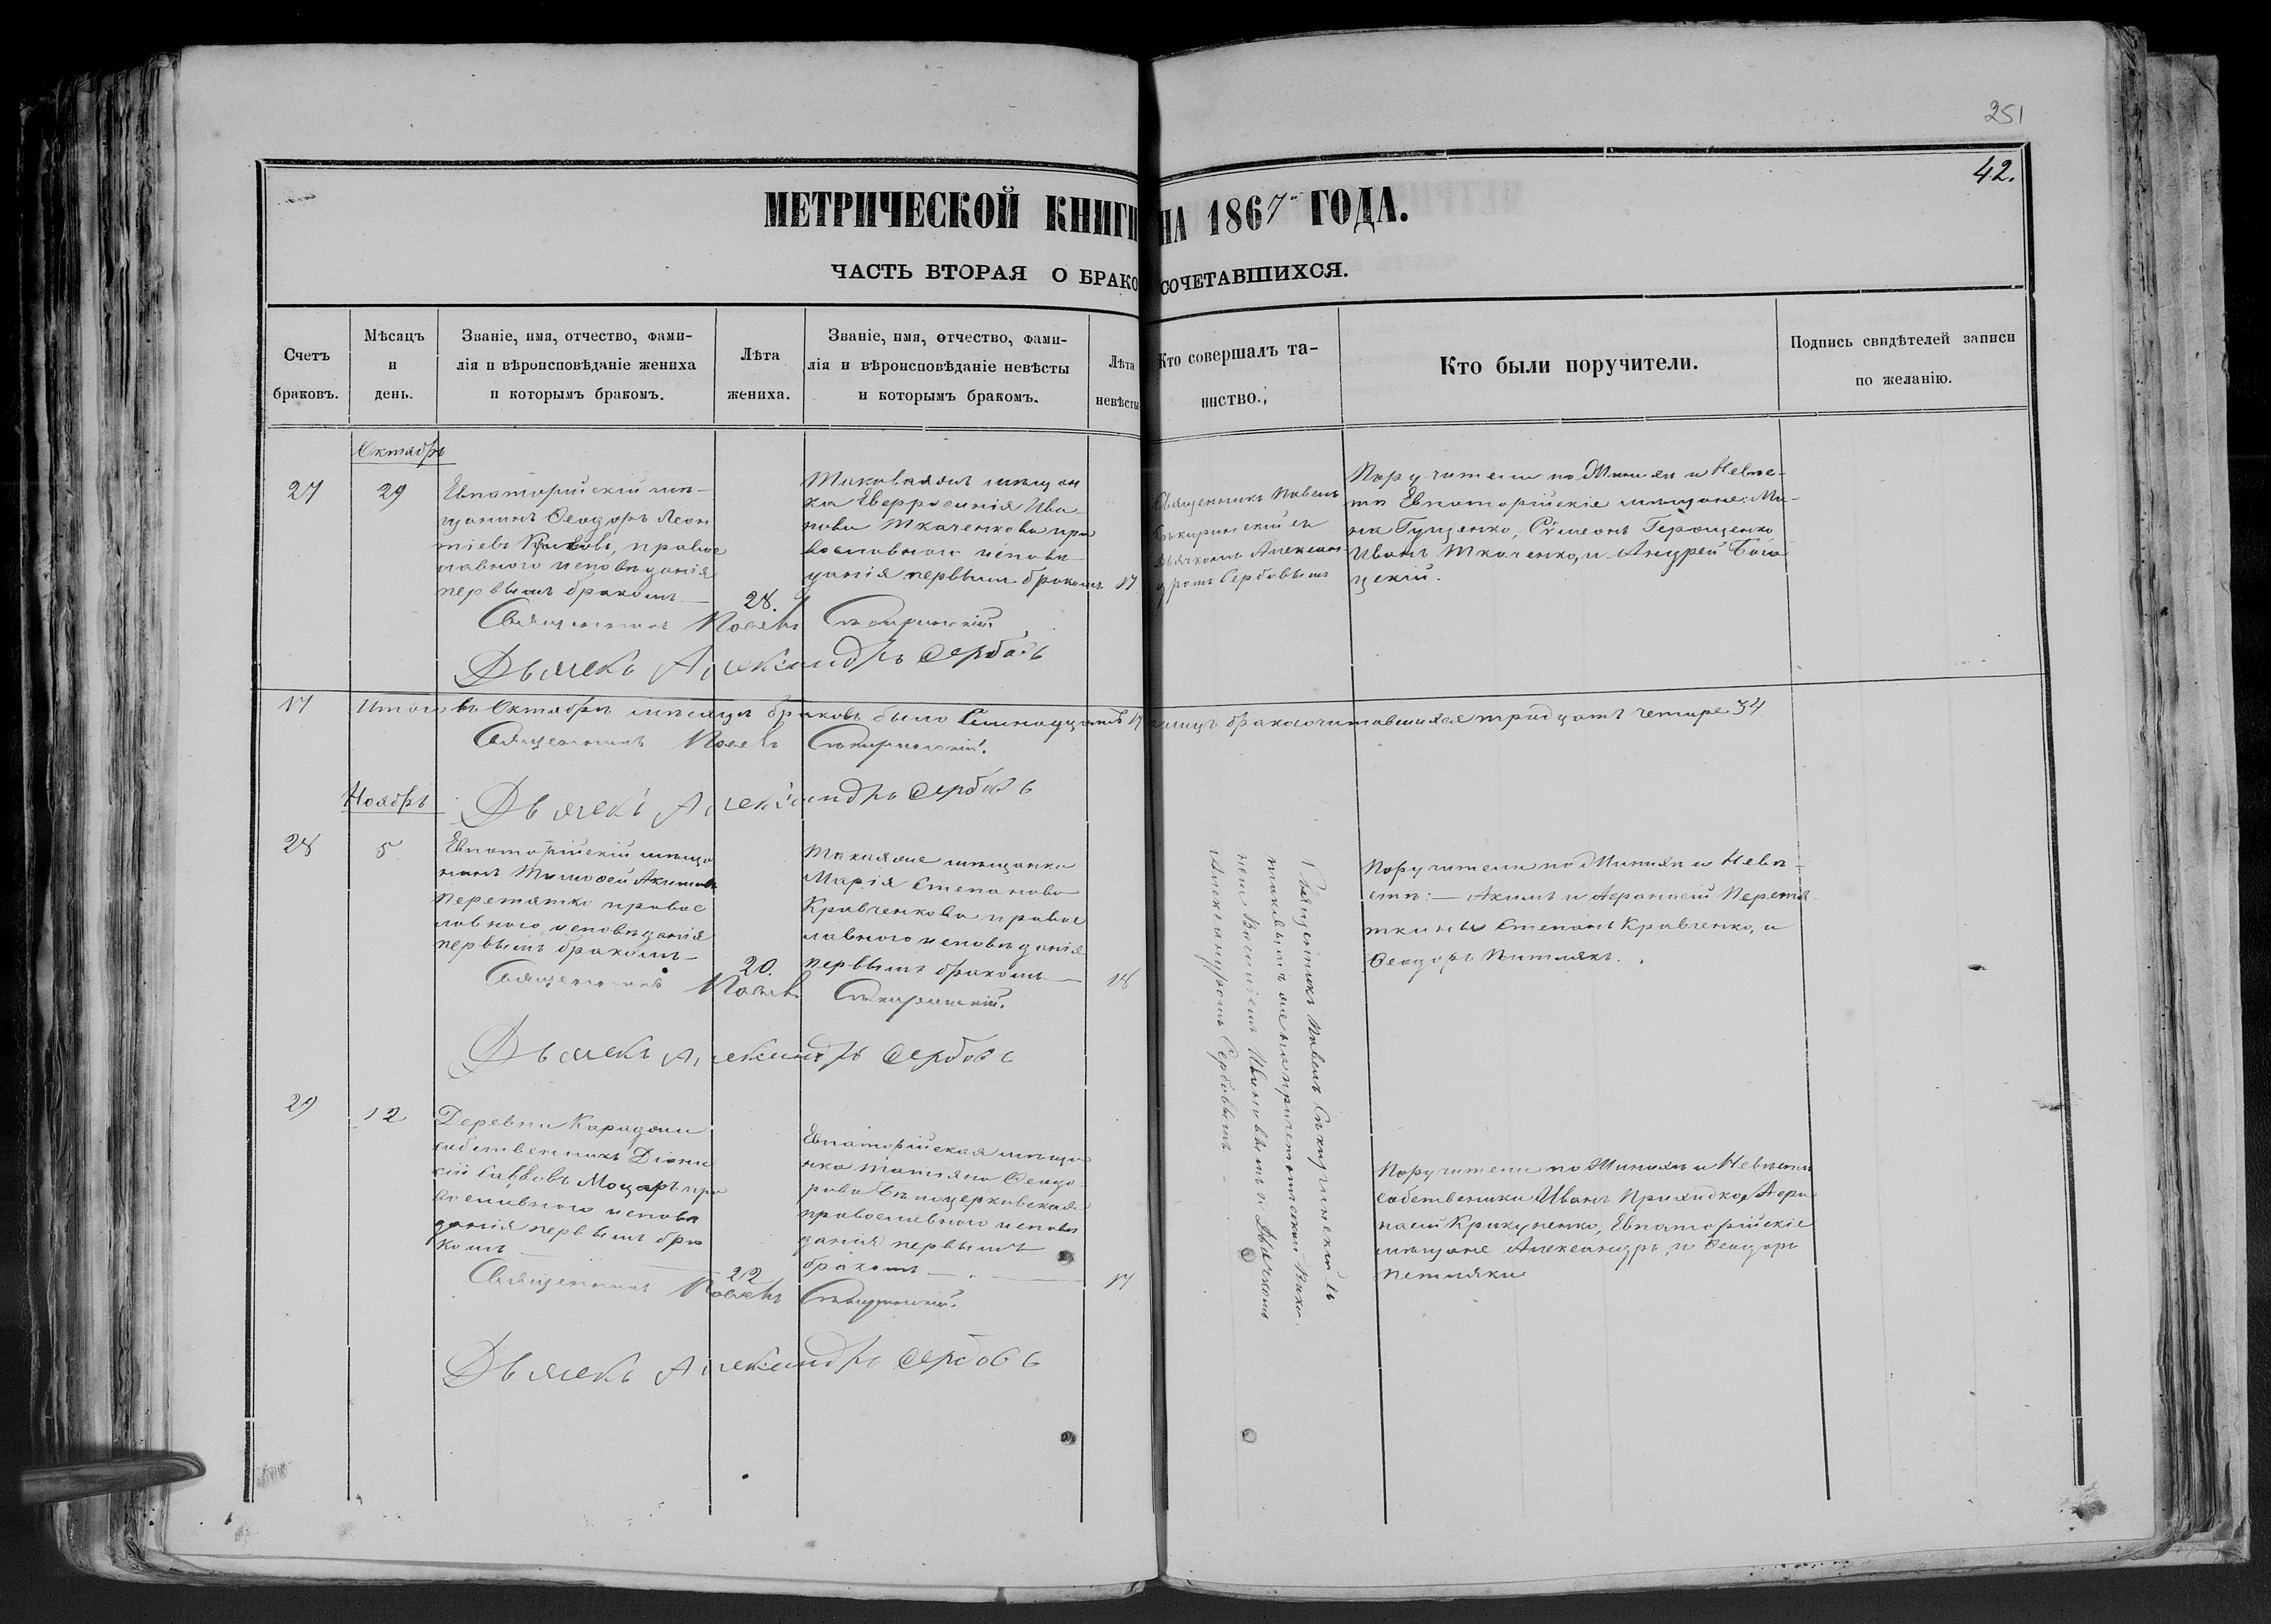 251
42.
МЕТРИЧЕСКОЙ КНИГИ НА 1867 ГОДА.
ЧАСТЬ ВТОРАЯ О БРАКОСОЧЕТАВШИХСЯ.
Счетъ
браковъ.
Мѣсяцъ
и
день.
Званіе, имя, отчество, фами-
лія и вѣроисповѣданіе жениха
и которымъ бракомъ.
Лѣта
жениха.
Званіе, имя, отчество, фами-
лія и вѣроисповѣданіе невѣсты
и которымъ бракомъ.
Лѣта
невѣсты
Кто совершалъ та-
инство.
Кто были поручители.
Подпись свидѣтелей записи
по желанію.
Октябрь
27
29
Евпаторійскій мѣ-
щанинъ Ѳеодоръ Леон
тіевъ, правос
лавного исповѣданія
первымъ бракомъ
28.
Таковаяжъ мѣщан
ка Евфросинія Ива
нова Ткаченкова пра
вославного исповѣ
данія первымъ бракомъ
17
Священникъ Павелъ
Сѣкиринскій съ
дьячкомъ Алексан
дромъ Сербовымъ
Поручители по Женихѣ и Невѣс-
тѣ Евпаторійскіе мѣщане: Ми-
на Гущенко, Сѵмеонъ Геращенко
Иванъ Ткаченко, и Андрей
Священникъ Павелъ Сѣкиринскій
Дьячекъ Александръ Сербовъ
17 Итого въ Октябрѣ мѣсяцѣ браковъ было Семнадцать 17 лицъ бракосочитавшихся тридцать четыре 34
Священникъ Павелъ Сѣкиринскій.
Дьячекъ Александръ Сербовъ
Ноябрь
28
5
Евпаторійскій мѣща
нинъ Тимоѳей Акимовъ
Перетятко правос
лавного исповѣданія
первымъ бракомъ
20.
Такаяже мѣщанка
Марія Степанова
Кравченкова правос
лавного исповѣданія
первымъ бракомъ
18
Священникъ Павелъ Сѣкиринскій съ
Александромъ Сербовымъ
Поручители по Женихѣ и Невѣ-
стѣ: — Акимъ и Афанасій Перетя
ткины Степанъ Кравченко, и
Ѳеодоръ Питлякъ.
Священникъ Павелъ Сѣкиринскій.
Дьячекъ Александръ Сербовъ
29
12
Деревни Караджи
собственникъ Діони
сій Саввовъ Моцарь пра
вославного исповѣ
данія первымъ бра
комъ
22
Евпаторійская мѣщан
ка Татіяна Ѳеодо
рова Бѣлоцерковская
православного исповѣ
данія первымъ
бракомъ
17
Поручители по Женихѣ и Невѣсти
собственики Иванъ Приходко Афа
насій Крикуненко, Евпаторійскіе
мѣщане Александръ, и Ѳеодоръ
Петляки
Священникъ Павелъ Сѣкиринскій.
Дьячекъ Александръ Сербовъ